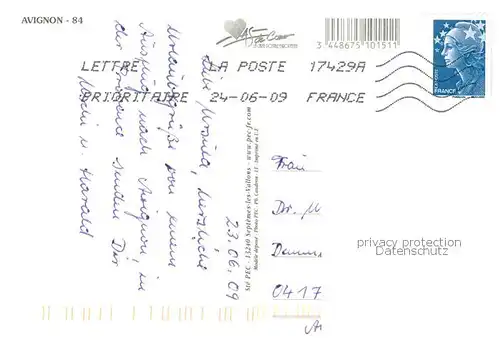 AVIGNON - 84
AS
de Coeur
3 448675 101511
LETTRE LA POSTE 17429A
PRIORITAIRE 24-06-09 FRANCE
FRANCE
23.06.09
Liebe Monika, herzliche
Urlaubsgrüße von einem
Ausflug nach Avignon, in
der Provence senden Dir
Uschi u. Harald
Sté PEC - 13240 Septèmes-les-Vallons - www.pec-fr.com
Modèle déposé - Photo PEC - Ph. Coudron - LE - Imprimé en U.E
Frau
Dr. M
0417
privacy protection
Datenschutz